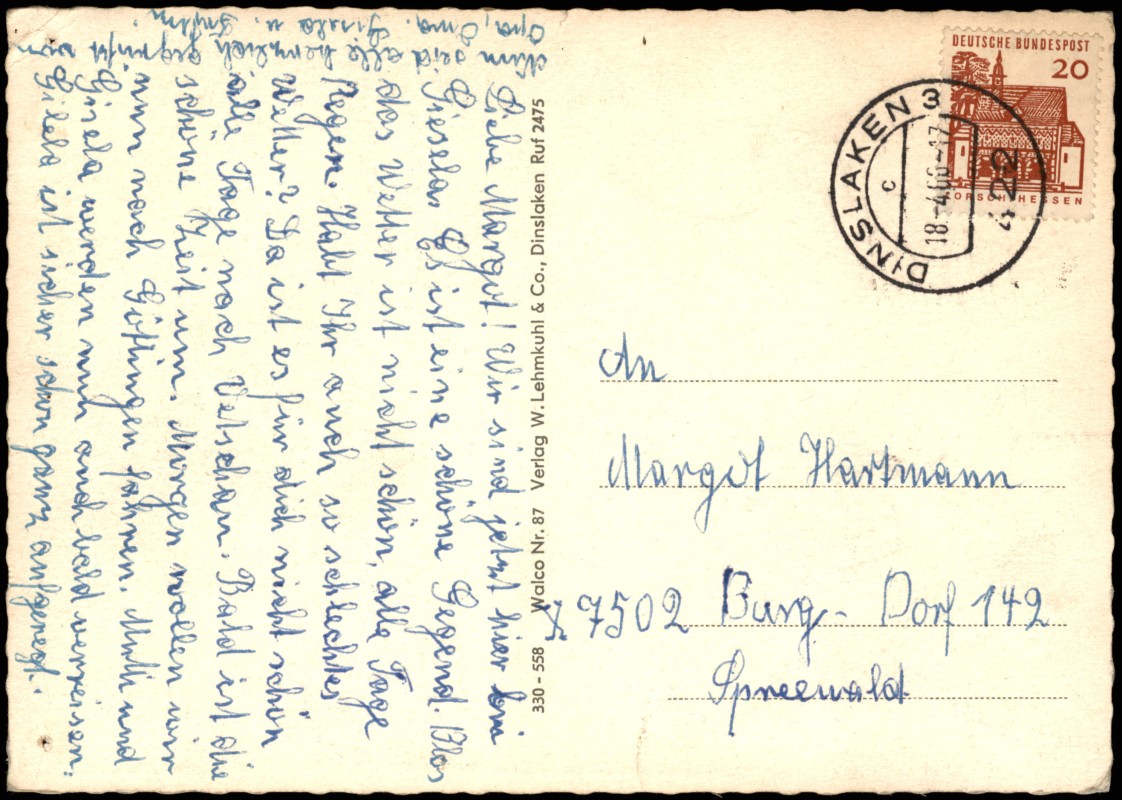 Liebe Margot! Wir sind jetzt hier bei
Giesela. Es ist eine schöne Gegend. Blos
das Wetter ist nicht schön, alle Tage
Regen. Habt Ihr auch so schlechtes
Wetter? Da ist es für dich nicht schön
alle Tage nach Vetschau. Bald ist die
schöne Zeit um. Morgen wollen wir
nun nach Göttingen fahren. Mutti und
Gisela werden nun auch bald verreisen.
Gisela ist sicher schon ganz aufgeregt.
Nun seid alle herzlich gegrüßt von
Opa, Oma. Gisela u.
330 - 558 Walco Nr. 87 Verlag W. Lehmkuhl & Co., Dinslaken Ruf 2475
DEUTSCHE BUNDESPOST
20
LORSCH HESSEN
DINSLAKEN 3
c
18.-4.66-17
422
An
Margot Hartmann
X 7502 Burg - Dorf 142
Spreewald